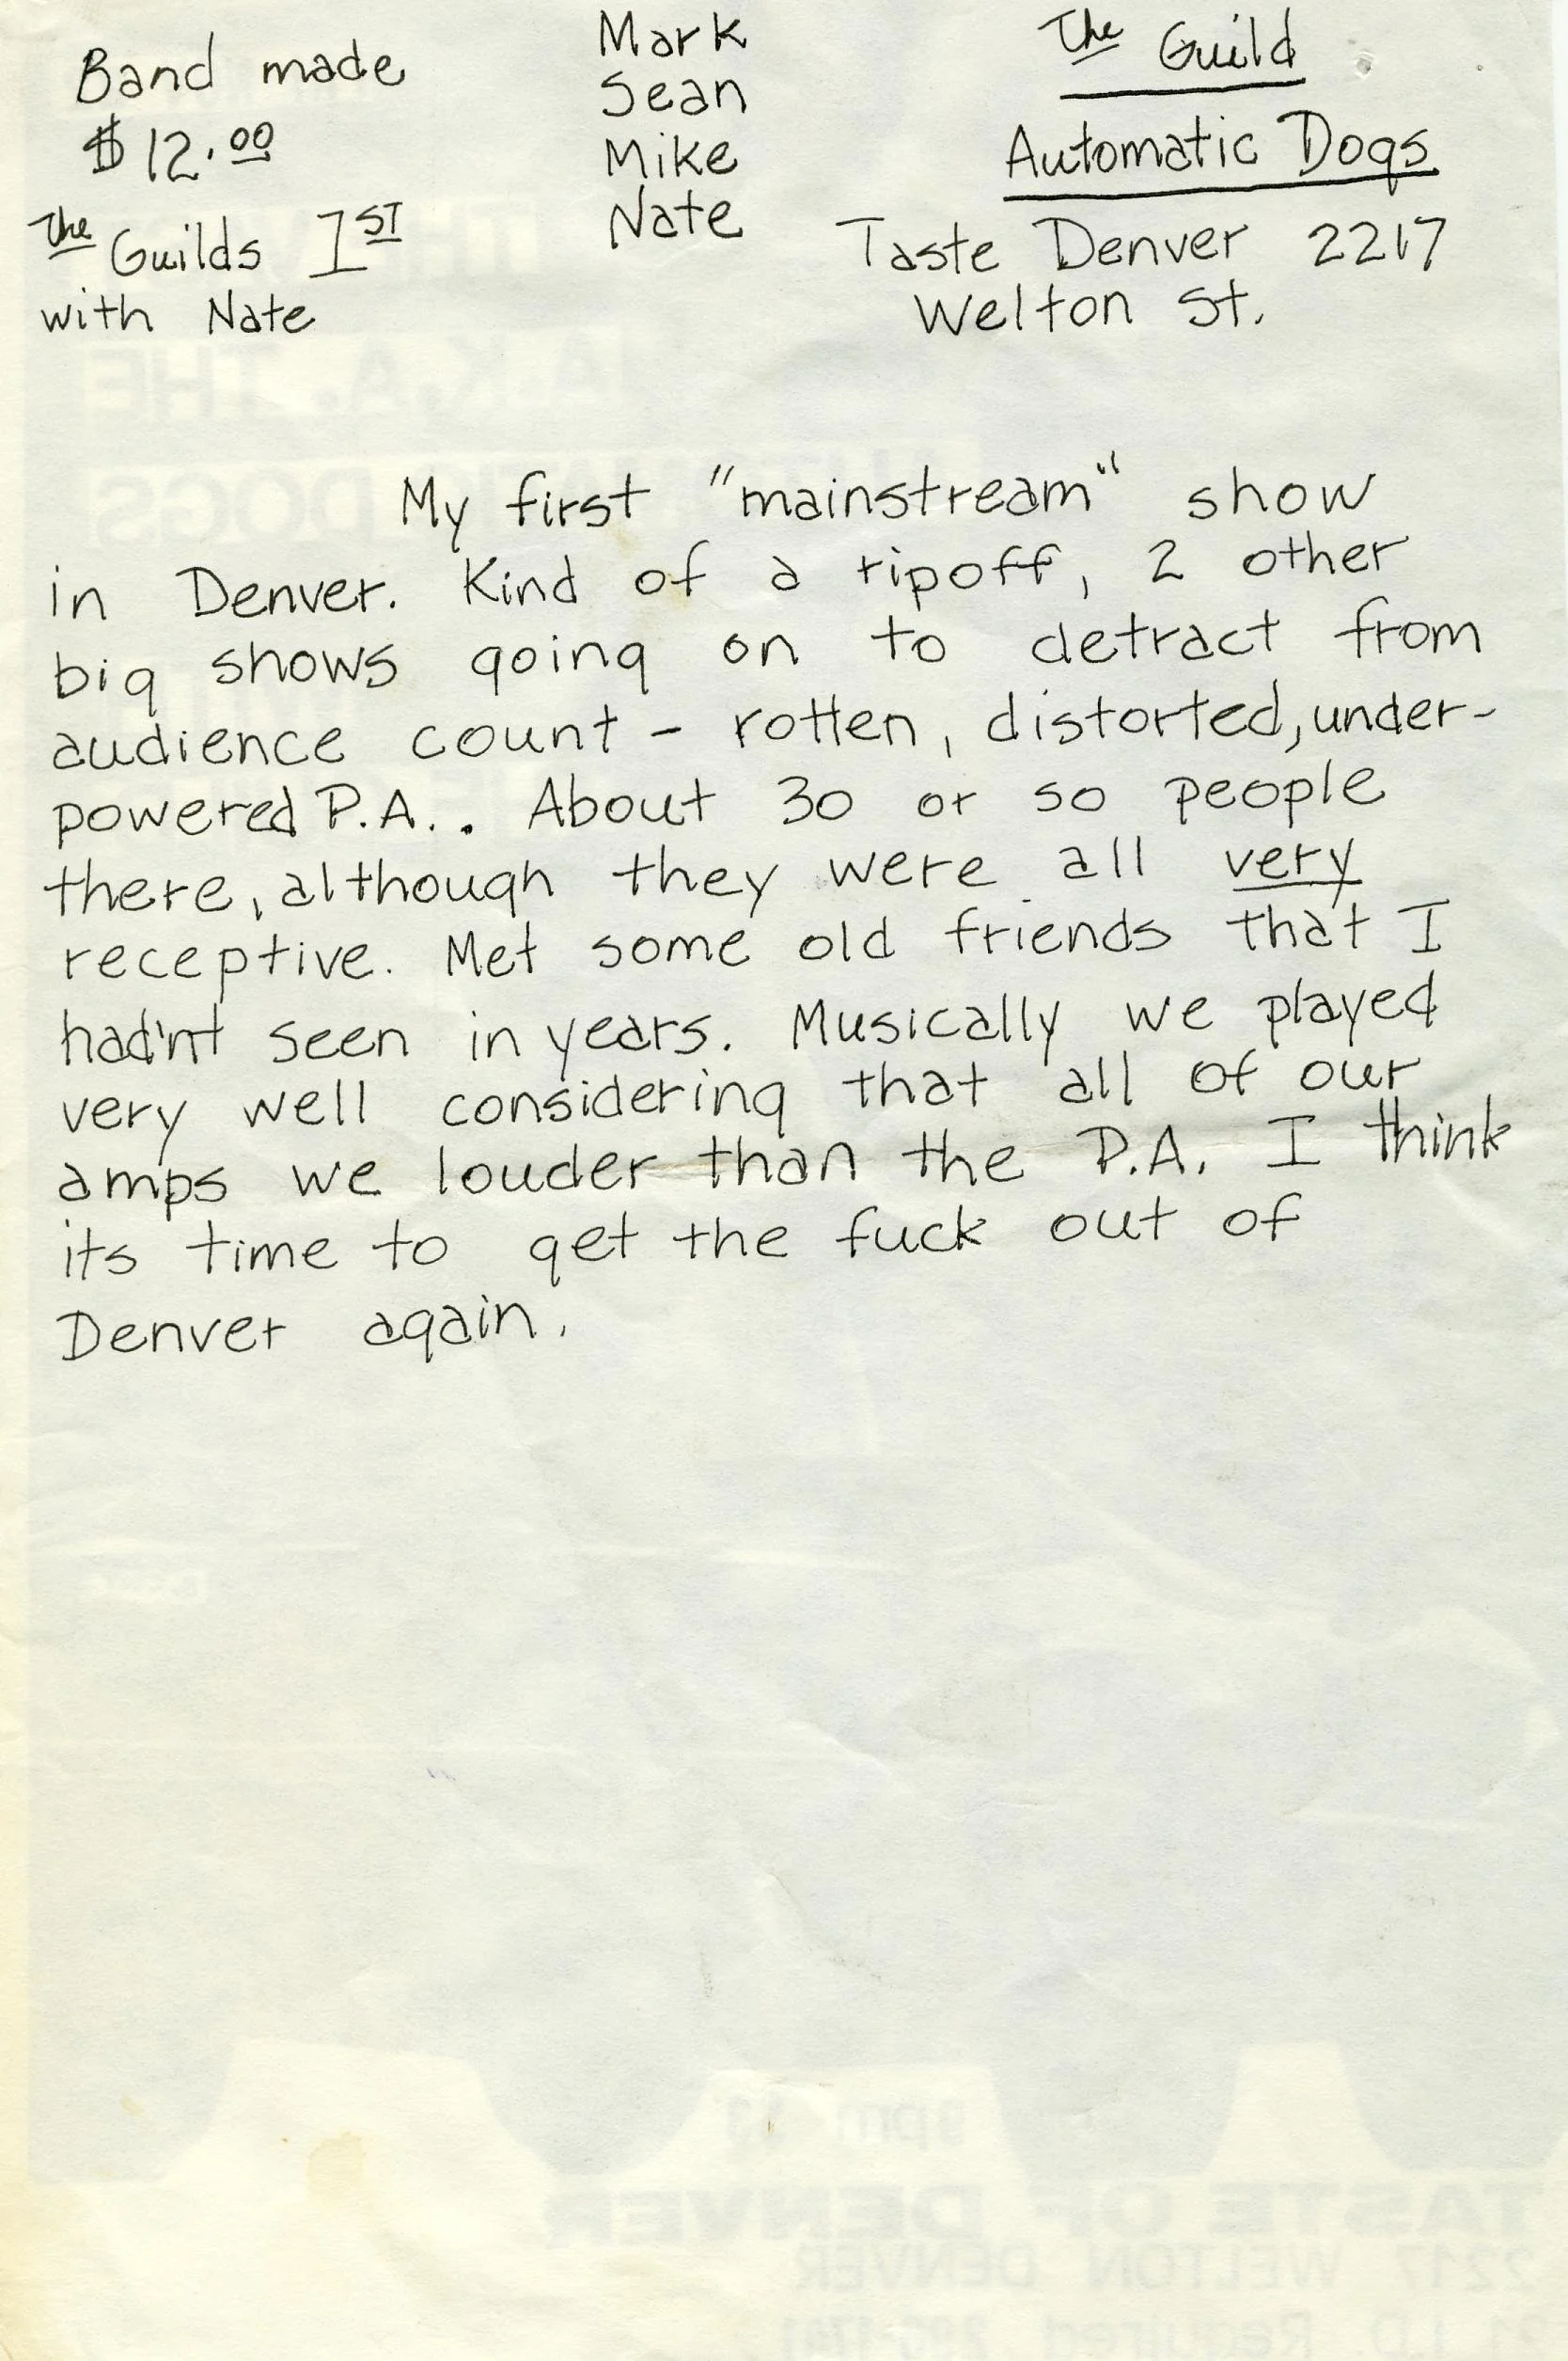 Band made
$12.00
The Guilds 1ST
with Nate
Mark
Sean
Mike
Nate
The Guild
Automatic Dogs
Taste Denver 2217
Welton St.
My first "mainstream" show
in Denver. Kind of a ripoff, 2 other
big shows going on to detract from
audience count - rotten, distorted, under-
powered P.A.. About 30 or so people
there, although they were all very
receptive. Met some old friends that I
had'nt seen in years. Musically we played
very well considering that all of our
amps we louder than the P.A. I think
its time to get the fuck out of
Denver again.
TASTE OF DENVER
2217 WELTON DENVER
21 I.D. Required